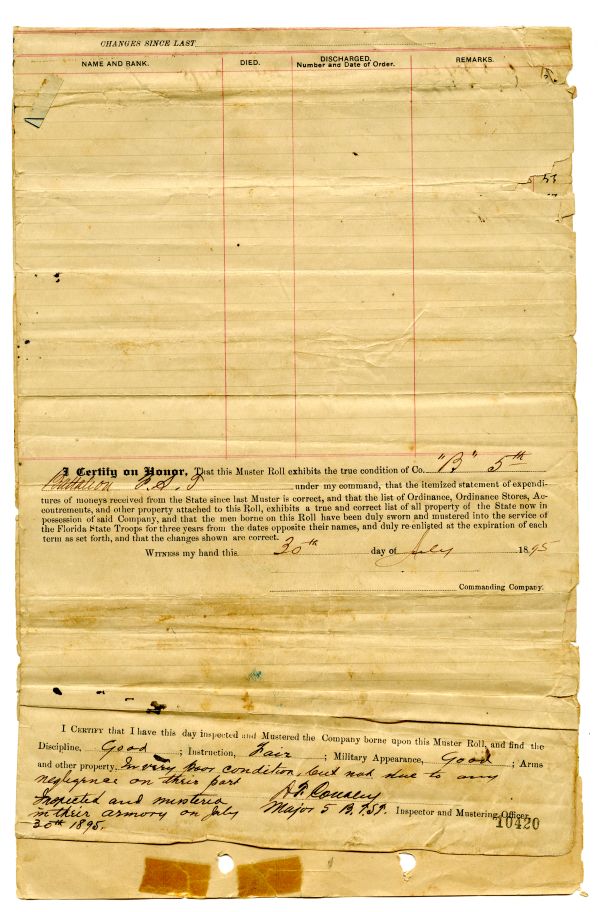 CHANGES SINCE LAST
NAME AND RANK. DIED. DISCHARGED. Number and Date of Order. REMARKS.
I Certify on Honor, That this Muster Roll exhibits the true condition of Co. "B" 5th
Battalion F. S. T under my command, that the itemized statement of expendi-
tures of moneys received from the State since last Muster is correct, and that the list of Ordinance, Ordinance Stores, Ac-
coutrements, and other property attached to this Roll, exhibits a true and correct list of all property of the State now in
possession of said Company, and that the men borne on this Roll have been duly sworn and mustered into the service of
the Florida State Troops for three years from the dates opposite their names, and duly re-enlisted at the expiration of each
term as set forth, and that the changes shown are correct.
WITNESS my hand this 30th day of July 1895
Commanding Company.
I CERTIFY that I have this day inspected and Mustered the Company borne upon this Muster Roll, and find the
Discipline, Good; Instruction, Fair; Military Appearance, Good; Arms
and other property. In very poor condition, but not due to any
neglegence on their part
Inspected and mustered
in their armory on July
30th 1895.
Major 5 B. F.S.T. Inspector and Mustering Officer.
10420